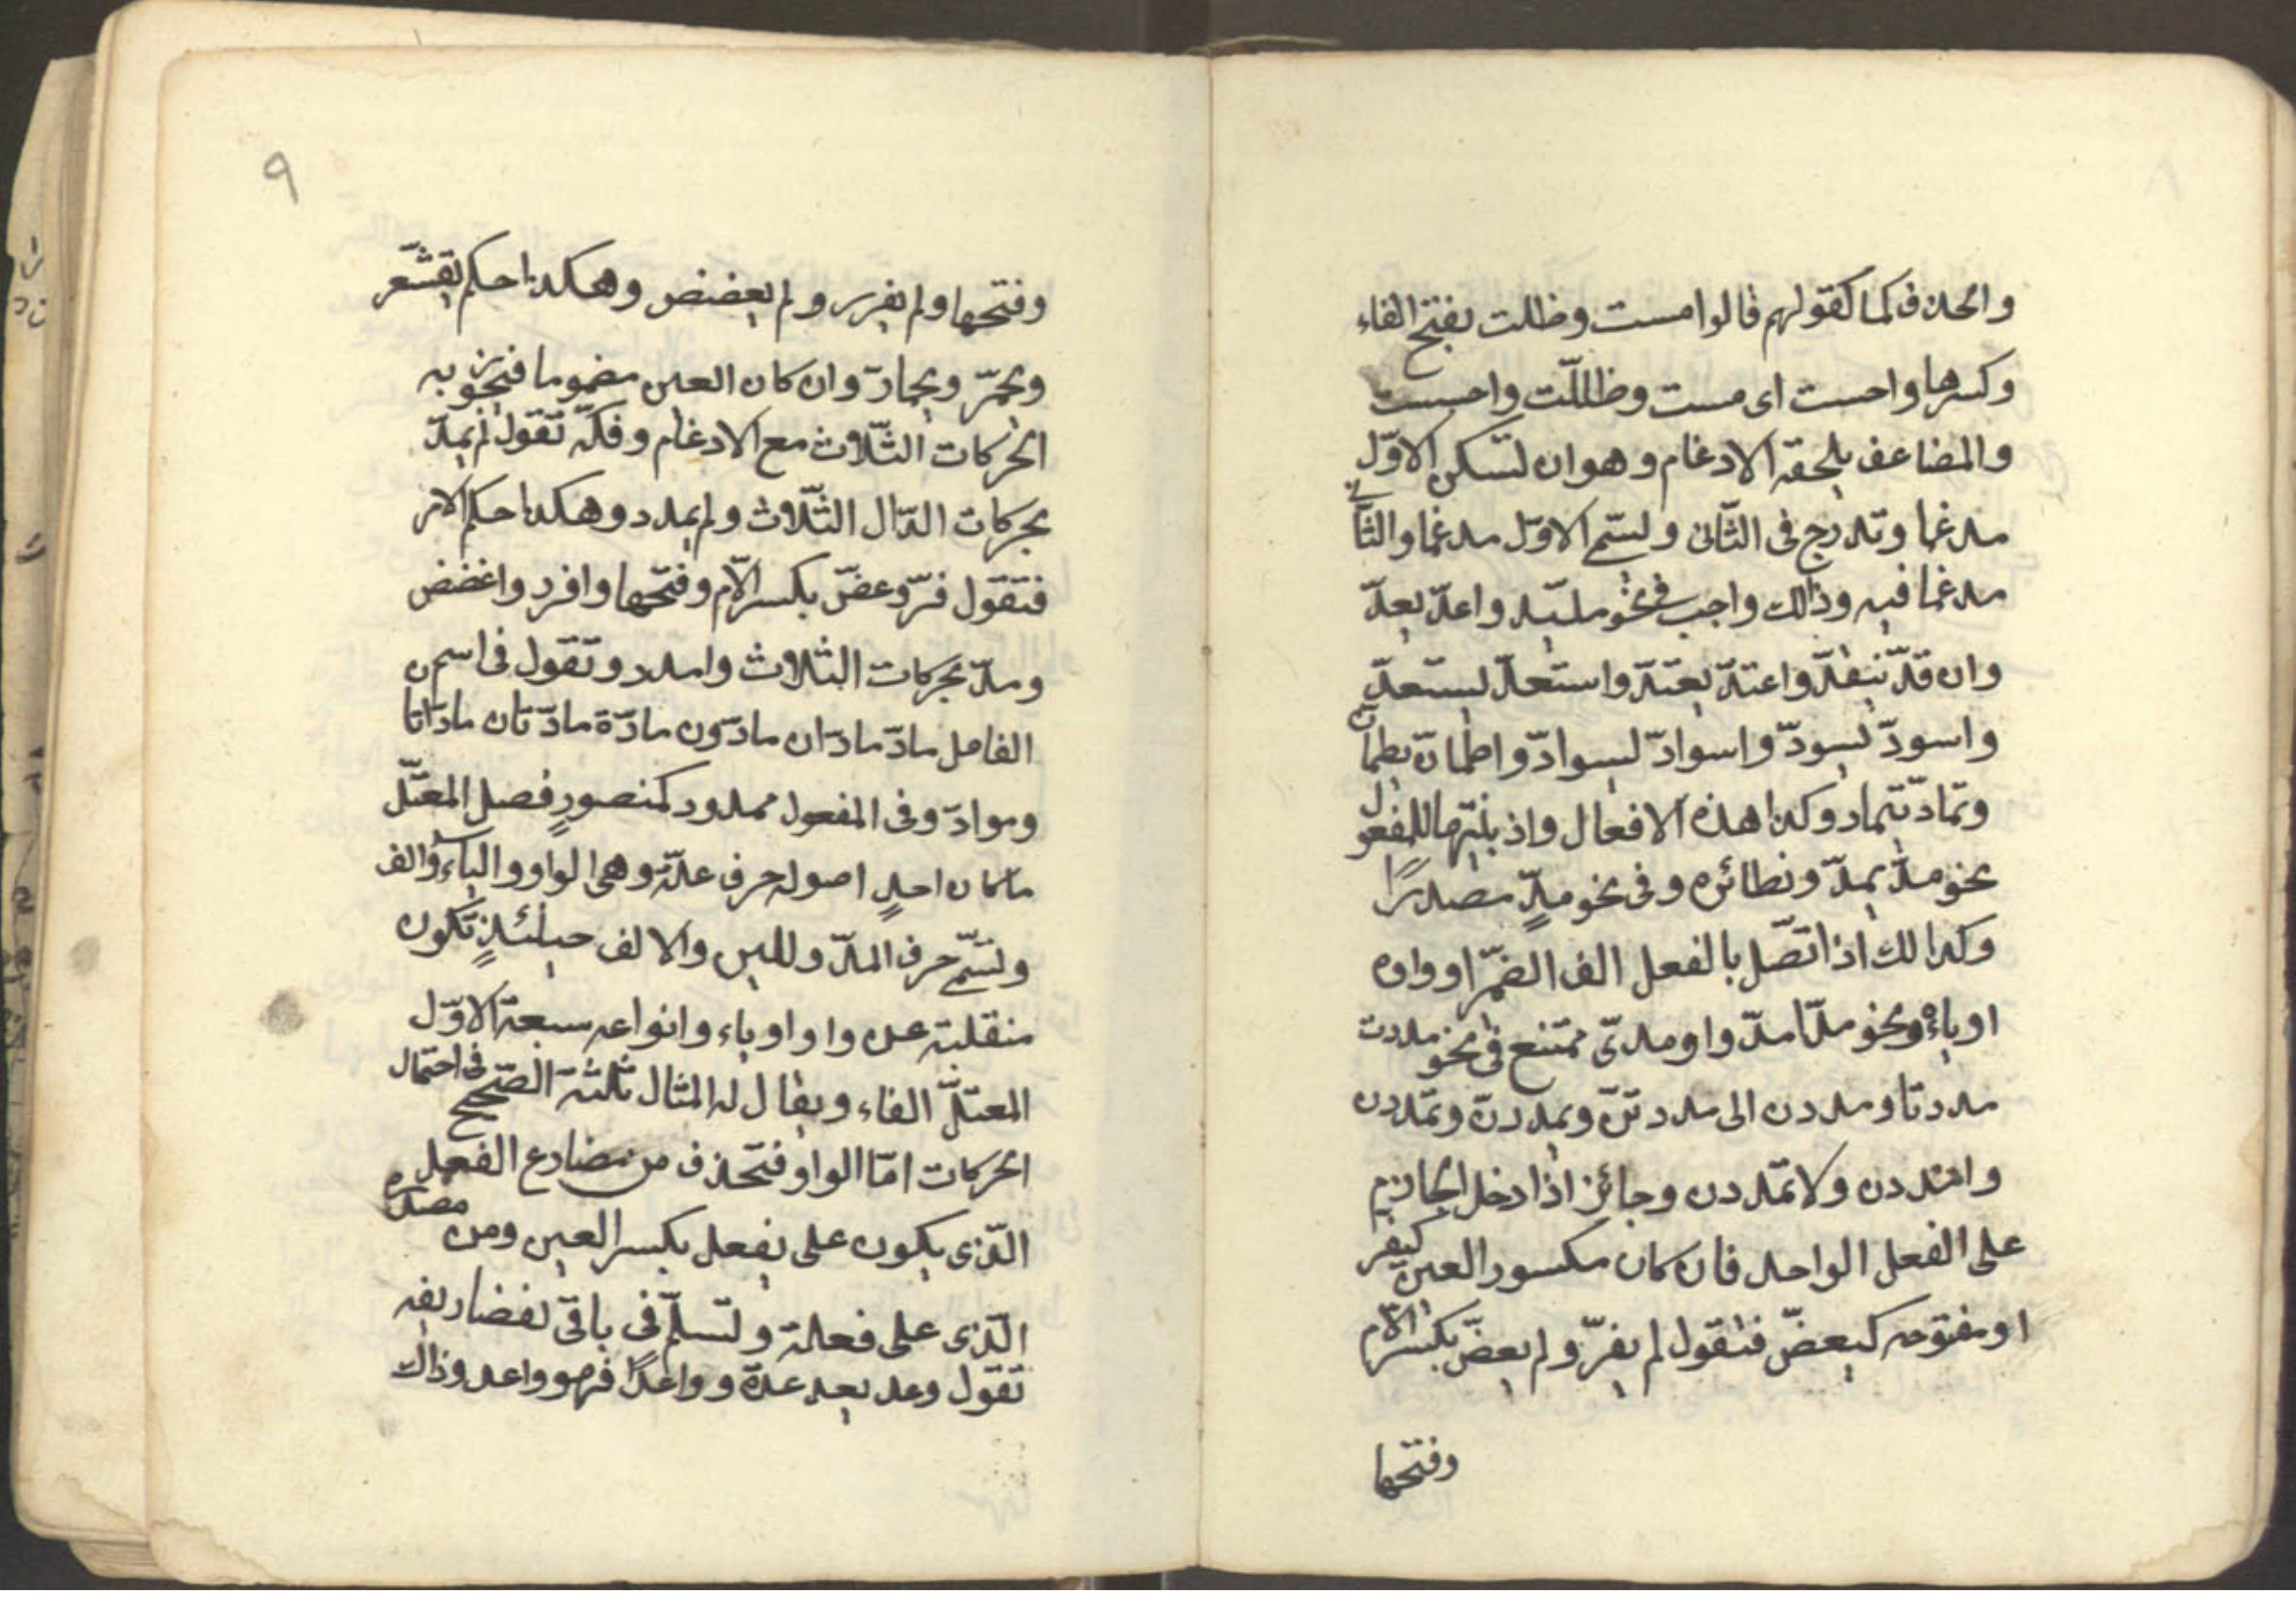 والحذف كما كقولهم قالوا مست وظلت بفتح الفاء
وكسرها واحست اى مست وظاللّت واحسست
والمضاعف يلحقه الادغام وهو ان لتسكن الاوّل
مدغما وتدرج فى الثّانى ولسّم الاوّل مدغما والثّانى
مدغما فيه وذالك واجب فى نحو مد يمد واعدّ يعدّ
وان قدّ ينقدّ واعتدّ يعتدّ واستعدّ يستعدّ
واسودّ يسودّ واسوادّ يسوادّ واطمانّ يطمانّ
وتمادّ يتماد وكذا هذه الافعال واذ بنيتها للمفعول
نحو مدّ يمدّ ونظائره وفى نحو مدٍّ مصدرًا
وكذالك اذا اتّصل بالفعل الف الضمّر او واو
او ياء ونحو مدّا مدّوا ومدىّ ممتنع فى نحو مددت
مددتا ومددن الى مددتنّ ويمددنّ وتمددن
وامددن ولا تمددن وجائز اذا دخل الجازم
على الفعل الواحد فان كان مكسور العين كيفر
او مفتوحه كيعضّ فتقول لم يفرّ ولم يعضّ بكسر الّام
وفتحها
٩
وفتحها ولم يفرر ولم يعضض وهكذا حكم يقشّعر
ويحمّر ويحمارّ وان كان العين مضموما فيجوز به
الحركات الثّلاث مع الادغام وفكّه تقول لم يمدّ
بحركات الدّال الثّلاث ولم يمدد وهكذا حكم الامر
فتقول فرّ وعضّ بكسر الّام وفتحها وافرر واغضض
ومدّ بحركات الثلاث وامدد وتقول فى اسم ن
الفاعل مادّ مادّان مادّون مادّة مادّتان مادّاتا
وموادّ وفى المفعول ممدود كمنصورٍ فصل المعتّل
ما كان احدٍ اصوله حرف علّة وهى الواو والياء والف
ولسّم حرف المدّ وللين والالف حينئذٍ تكون
منقلبة عن واو او ياء وانواعه سبعة الاوّل
المعتلّ الفاء ويقال له المثال ثلثة الصّحيح فى احتمال
الحركات امّا الواو فتحذف من مضارع الفعل
الّذى يكون على يفعل بكسر العين ومن مصدره
الّذى على فعلة ولتسلّم فى باقى تفضاريفه
تقول وعد يعد عدة وواعدًا فهو واعد وذاك